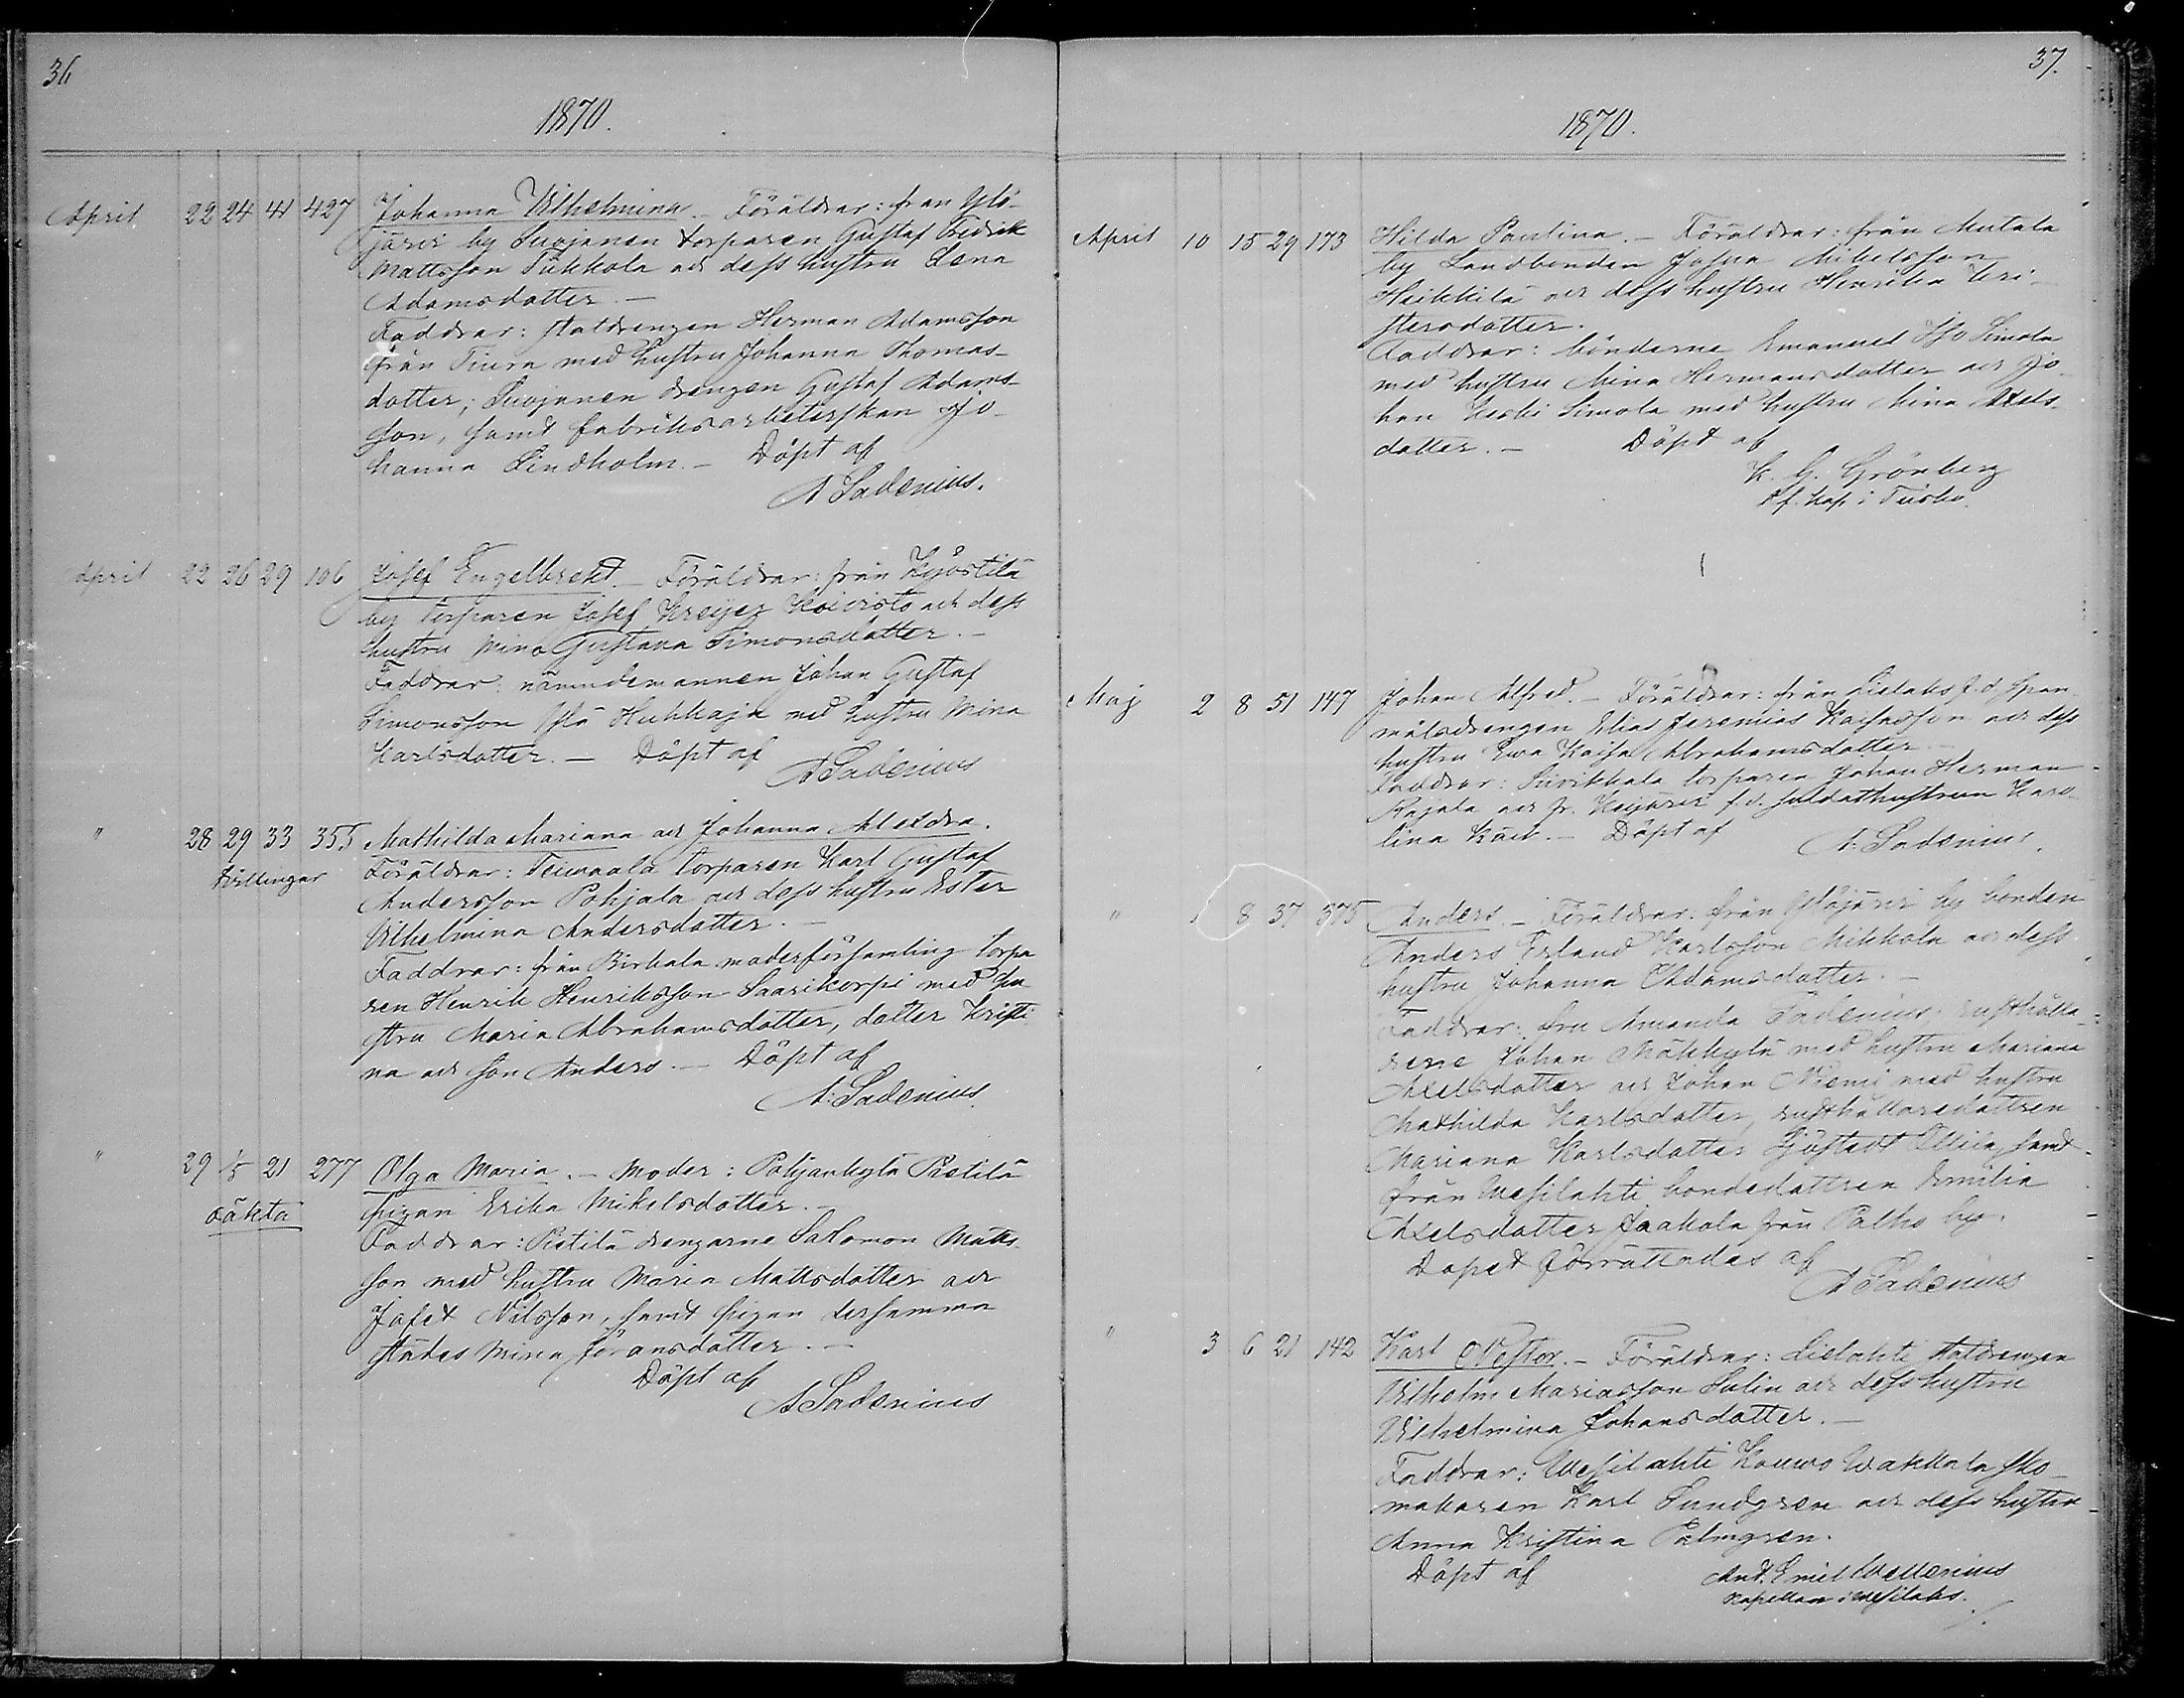 36
1870.
April 22 24 41 427 Johanna Vilhelmina. – Föräldrar: från Ylö-
järvi by Suojanen torparen Gustaf Fredrik
Mattsson Tukkola och dess hustru Lena
Adamsdotter. –
Faddrar: statdrengen Herman Adamsson
från Tiura med hustru Johanna Thomas-
dotter; Suojanen drengen Gustaf Adams-
son, samt fabriksarbeterskan Jo-
hanna Lindholm. – Döpt af
A Sadenius.
April 22 26 29 106 Josef Engelbrekt. – Föräldrar: från Kyöstilä
by torparen Josef Koivisto och dess
hustru Mina Gustava Simonsdotter. –
Faddrar: nämndemannen Johan Gustaf
Simonsson Huhkaja med hustru Mina
Karlsdotter. – Döpt af
A Sadenius
" 28 29 33 355 Mathilda Mariana och Johanna Alexdra.
tvillingar Föräldrar: Teivaala torparen Karl Gustaf
Andersson Pohjala och dess hustru Ester
Vilhelmina Andersdotter. –
Faddrar: från Birkala moderförsamling torpa
ren Henrik Henriksson Saarikorpi med hu
stru Maria Abrahamsdotter, dotter Kristi
na och son Anders. – Döpt af
A. Sadenius.
" 29 1/5 21 277 Olga Maria. – Moder: Pohjankylä Pietilä
oäkta pigan Erika Mikelsdotter. –
Faddrar: Pietilä drengarne Salomon Matts-
son med hustru Maria Mattsdotter och
Jafet Nilsson, samt pigan dersamma
städes Mina Göransdotter. –
Döpt af
A Sadenius
37.
1870.
April 10 15 29 173 Hilda Paulina. – Föräldrar: från Mutala
by Landbonden Josua Mikelsson
Heikkilä och dess hustru Henrika Kri-
stersdotter.
Faddrar: bönderne Emanuel Iso Simola
med hustru Mina Hermansdotter och Jo-
han Keski Simola med hustru Mina Axels-
dotter. – Döpt af
K. G. Grönberg
Kap. i
Maj 2 8 31 147 Johan Alfred. – Föräldrar: från Lielaks f.d. span-
målsdrengen Elias Jeremias Kaisasson och dess
hustru Eva Kaisa Abrahamsdotter. –
Faddrar: Siivikkala torparen Johan Herman
Rajala och fr. Keijärvi f.d. soldathustrun Karo-
lina – Döpt af
A. Sadenius.
" 1 8 37 375 Anders. – Föräldrar: från Ylöjärvi by bonden
Anders Erland Karlsson Mikkola och dess
hustru Johanna Adamsdotter. –
Faddrar: fru Amanda Sadenius, rusthålla-
rene Johan Mäkkylä med hustru Mariana
Axelsdotter och Johan Niemi med hustru
Mathilda Karlsdotter, rusthållaredottren
Mariana Karlsdotter Sjöstedt samt
från Vesilahti bondedottren Emilia
Axelsdotter Jaakola från Palho by.
Dopet förrättades af
A Sadenius
" 3 6 21 142 Karl Nestor. – Föräldrar: Lielahti statdrengen
Vilhelm Mariasson Sulin och dess hustru
Vilhelmina Johansdotter. –
Faddrar: Vesilahti Kouvo Wakkala sko-
makaren Karl Sundgren och dess hustru
Anna Kristina Palmgren.
Döpt af
And. Emil Wallenius
Kapellan i Vesilaks.